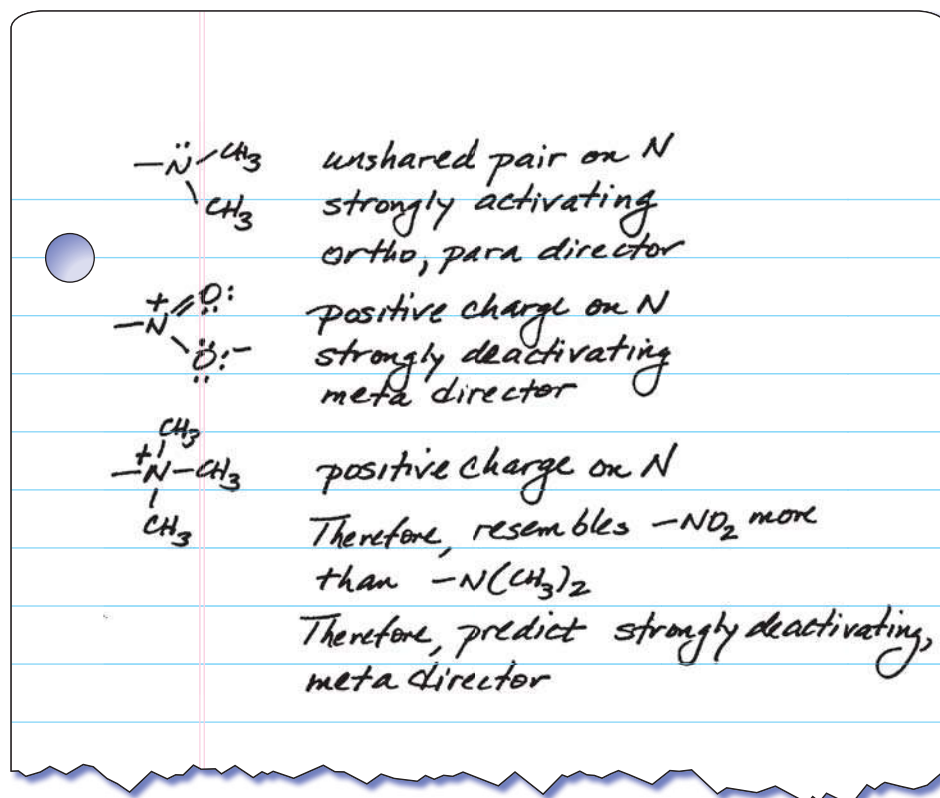 –N̈–CH3 unshared pair on N
CH3 strongly activating
ortho, para director
+ O:
–N positive charge on N
O:– strongly deactivating
meta director
CH3
+
–N–CH3 positive charge on N
CH3 Therefore, resembles –NO2 more
than –N(CH3)2
Therefore, predict strongly deactivating,
meta director